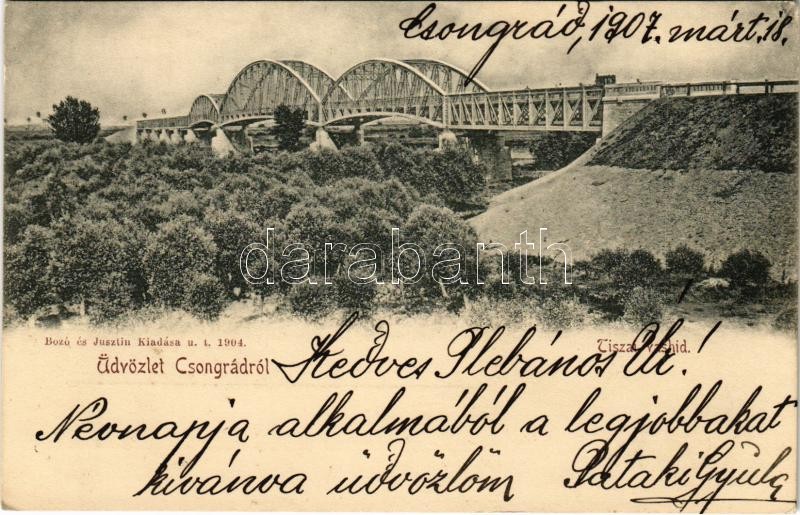 Csongrád, 1907. márt. 18.
darabanth
Bozó és Jusztin Kiadása u. t. 1904.
Tiszai vashid.
Üdvözlet Csongrádról
Kedves Plebános Úr!
Nevnapja alkalmából a legjobbakat
kivánva üdvözlöm Pataki Gyula